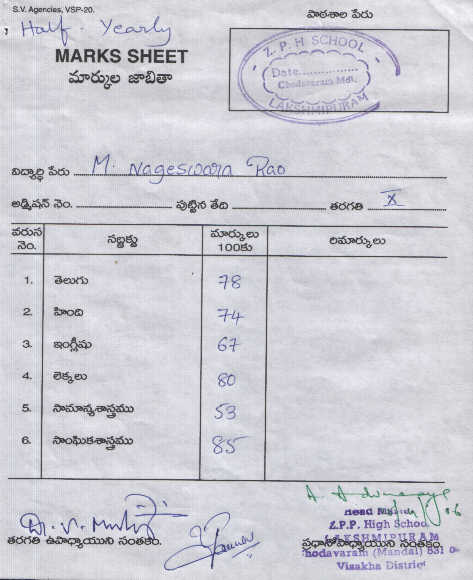 S.V. Agencies, VSP-20.
Half - Yearly
పాఠశాల పేరు
MARKS SHEET
మార్కుల జాబితా
Z. P. H SCHOOL
Date................
Chodavaram Mdl.
LAKSHMIPURAM
విద్యార్థి పేరు M. Nageswara Rao
అడ్మిషన్ నెం. పుట్టిన తేది తరగతి X
వరుస నెం. సబ్జక్టు మార్కులు 100కు రిమార్కులు
1. తెలుగు 78
2. హింది 74
3. ఇంగ్లీషు 67
4. లెక్కలు 80
5. సామాన్యశాస్త్రము 53
6. సాంఘికశాస్త్రము 85
Head
Z.P.P. High School
LAKSHMIPURAM
తరగతి ఉపాధ్యాయుని సంతకం. ప్రధానోపాధ్యాయుని సంతకం.
hodavaram (Mandal) 531 0
Visakha District